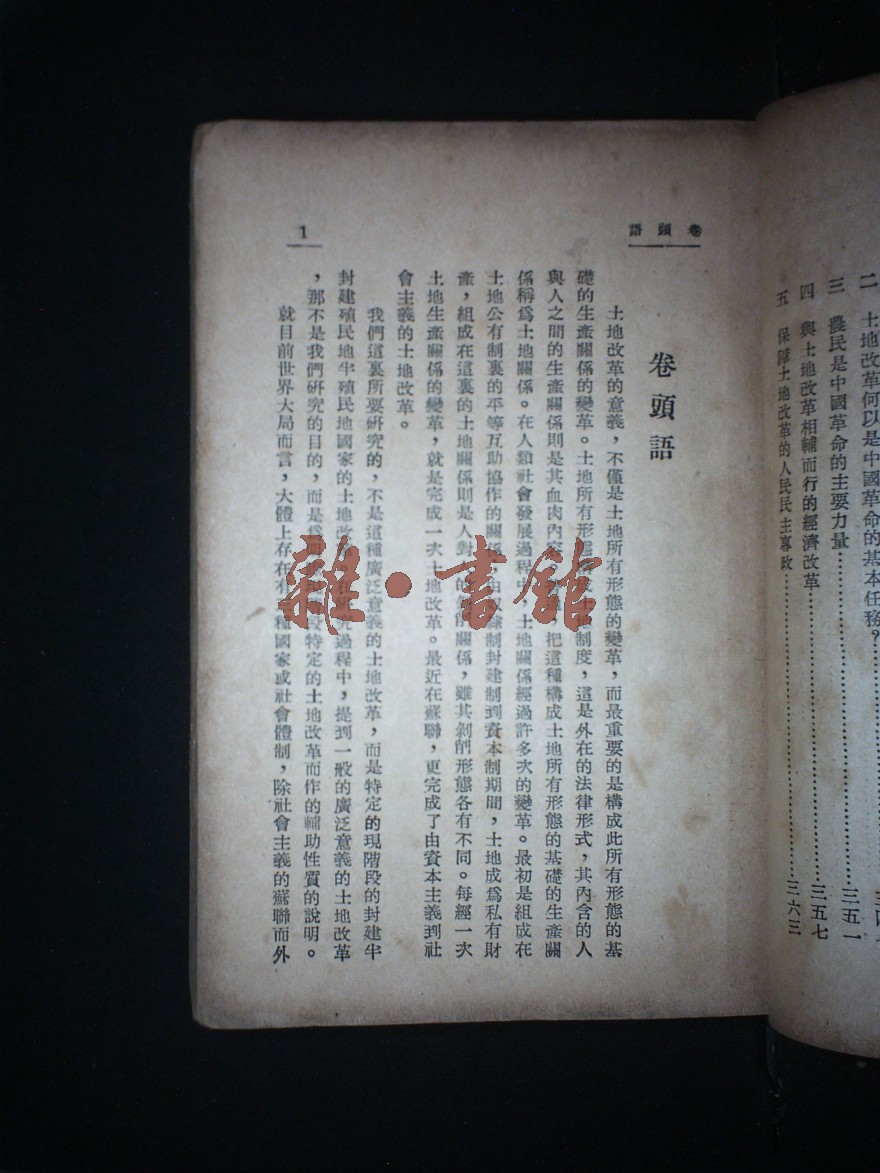 二 土地改革何以是中國革命的基本任務?
三 農民是中國革命的主要力量 三五一
四 與土地改革相輔而行的經濟改革 三五七
五 保障土地改革的人民民主專政 三六三
卷頭語
1
卷頭語
土地改革的意義,不僅是土地所有形態的變革,而最重要的是構成此所有形態的基
礎的生產關係的變革。土地所有形態 土地制度,這是外在的法律形式,其內含的人
與人之間的生產關係則是其血肉內容 把這種構成土地所有形態的基礎的生產關
係稱爲土地關係。在人類社會發展過程中,土地關係經過許多次的變革。最初是組成在
土地公有制裏的平等互助協作的關係,由奴隸制封建制到資本制期間,土地成爲私有財
產,組成在這裏的土地關係則是人對人的剝削關係,雖其剝削形態各有不同。每經一次
土地生產關係的變革,就是完成一次土地改革。最近在蘇聯,更完成了由資本主義到社
會主義的土地改革。
我們這裏所要研究的,不是這種廣泛意義的土地改革,而是特定的現階段的封建半
封建殖民地半殖民地國家的土地改革。在研究過程中,提到一般的廣泛意義的土地改革
,那不是我們研究的目的,而是爲 段特定的土地改革而作的輔助性質的說明。
就目前世界大局而言,大體上存在有 種國家或社會體制,除社會主義的蘇聯而外
雜·書館